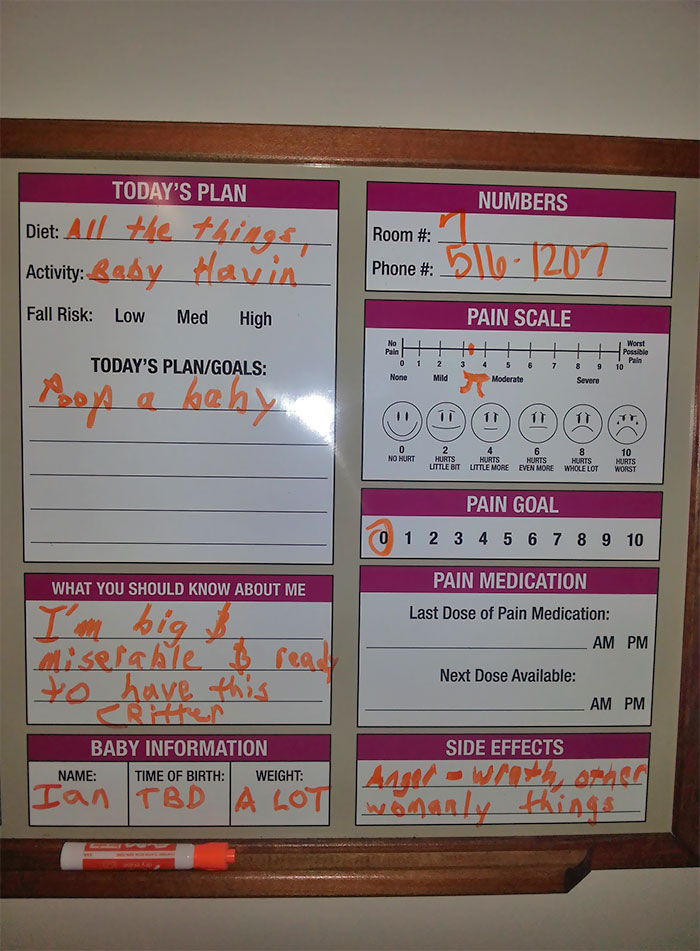 TODAY'S PLAN
Diet: All the things,
Activity: Baby Havin'
Fall Risk: Low Med High
TODAY'S PLAN/GOALS:
Poop a baby
WHAT YOU SHOULD KNOW ABOUT ME
I'm big &
miserable & ready
to have this
CRitter
BABY INFORMATION
NAME: TIME OF BIRTH: WEIGHT:
Ian TBD A LOT
NUMBERS
Room #: 7
Phone #: 516-1207
PAIN SCALE
No Pain 0 1 2 3 4 5 6 7 8 9 10 Worst Possible Pain
None Mild π Moderate Severe
0 2 4 6 8 10
NO HURT HURTS LITTLE BIT HURTS LITTLE MORE HURTS EVEN MORE HURTS WHOLE LOT HURTS WORST
PAIN GOAL
0 1 2 3 4 5 6 7 8 9 10
PAIN MEDICATION
Last Dose of Pain Medication:
AM PM
Next Dose Available:
AM PM
SIDE EFFECTS
Anger - wrath, other
womanly things